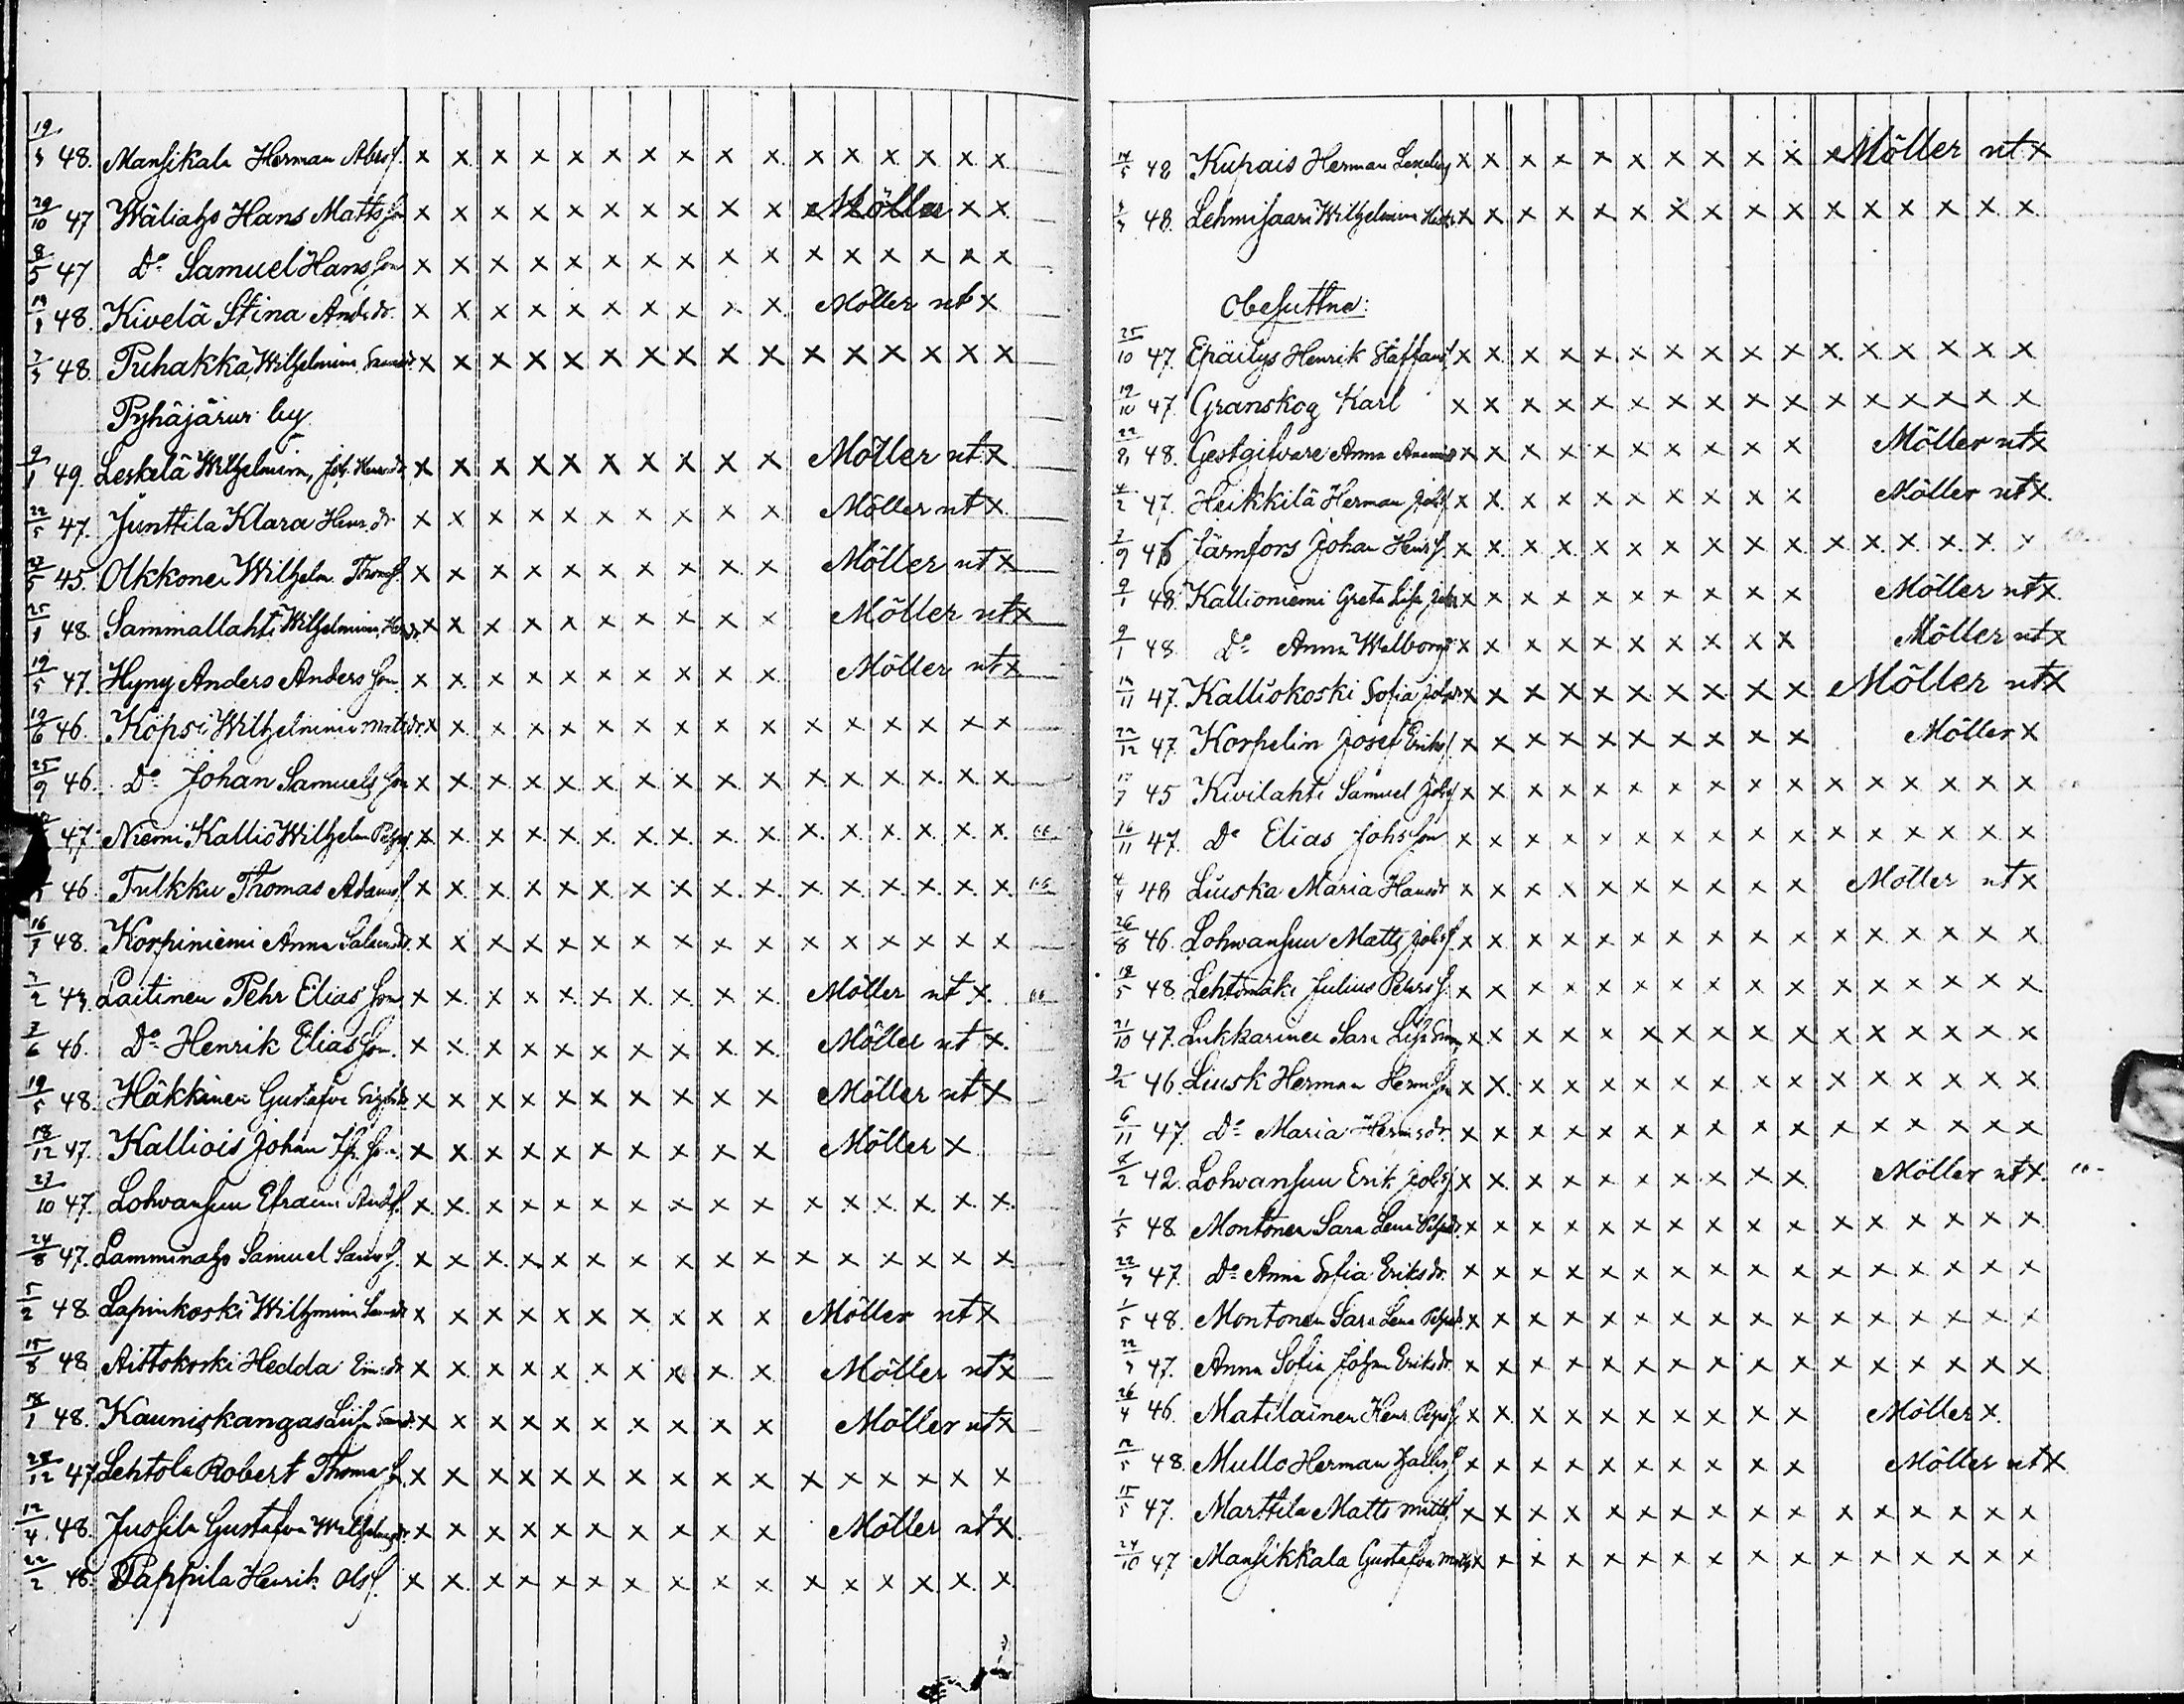 19/3 48. Mansikala Herman Abrsf. x x x x x x x x x x x x x x x x
29/10 47 Wäliaho Hans Matts son x x x x x x x x x x Möller x x
8/5 47 Do Samuel Hans son x x x x x x x x x x x x x x x x
48. Kivelä Stina Andsdr. x x x x x x x x x x Möller nt x
48. Puhakka, Wilhelmina x x x x x x x x x x x x x x x x
Pyhäjärvi by
9/1 49. Leskelä Wilhelmina, Joh. Henrdr x x x x x x x x x x Möller nt x
22/5 47. Junttila Klara Henr.dr x x x x x x x x x x Möller nt x
45. Olkkonen Wilhelm Thomsf. x x x x x x x x x x Möller nt x
25/1 48. Sammallahti Wilhelmina x x x x x x x x x x Möller nt x
19/5 47. Hyny Anders Anders son x x x x x x x x x x Möller nt x
19/6 46. Köpsi Wilhelmina Mattsdr x x x x x x x x x x x x x x x x
25/9 46. Do Johan Samuels son x x x x x x x x x x x x x x x x
47 Niemi Kallio Wilhelm x x x x x x x x x x x x x x x x
46. Tulkku Thomas Adamsf x x x x x x x x x x x x x x x x
16/7 48. Korpiniemi Anna x x x x x x x x x x x x x x x x
43. Laitinen Pehr Elias son x x x x x x x x x x Möller nt x
46. Do Henrik Elias son x x x x x x x x x x Möller nt x
19/5 48. Häkkinen Gustafva x x x x x x x x x x Möller nt x
18/12 47. Kalliois Johan x x x x x x x x x x Möller x
27/10 47. Lohvansuu Efraim Andsf. x x x x x x x x x x x x x x x x
24/8 47. Lamminaho Samuel x x x x x x x x x x x x x x x x
5/2 48. Lapinkoski Wilhmina x x x x x x x x x x Möller nt x
15/8 48 Aittokoski Hedda x x x x x x x x x x Möller nt x
18/1 48. Kauniskangas Liisa x x x x x x x x x x Möller nt x
28/12 47 Lehtola Robert Thoma x x x x x x x x x x x x x x x x
12/4 48. Jussila Gustafva Wilhelmsdr. x x x x x x x x x x Möller nt x
22/2 48. Pappila Henrik Olsf. x x x x x x x x x x x x x x x x
48 Kupais Herman x x x x x x x x x x x Möller nt x
48. Lehmisaari Wilhelmina x x x x x x x x x x x x x x x x
Obesuttna:
25/10 47. Epäilys Henrik Staffansf x x x x x x x x x x x x x x x x
19/10 47. Granskog Karl x x x x x x x x x x x x x x x x
48. Gestgifvare Anna x x x x x x x x x x Möller nt x
4/2 47. Heikkilä Herman Johsf x x x x x x x x x x Möller nt x
Järnfors Johan Henrsf. x x x x x x x x x x x x x x x x
9/1 48. Kallioniemi Greta Lisa x x x x x x x x x x Möller nt x
9/1 48. Do Anna Walborg x x x x x x x x x x Möller nt x
47. Kalliokoski Sofia x x x x x x x x x x Möller nt x
22/12 47. Korpelin Josef Eriksf x x x x x x x x x x Möller x
45 Kivilahti Samuel Johsf x x x x x x x x x x x x x x x x
16/11 47. Do Elias Johs son x x x x x x x x x x x x x x x x
48 Liuska Maria Hansdr x x x x x x x x x x Möller nt x
26/8 46. Lohvansuu Matts Johsf x x x x x x x x x x x x x x x x
18/5 48. Lehtomäki Julius Pehrsf. x x x x x x x x x x x x x x x x
21/10 47. Lukkarinen Sara Lisa x x x x x x x x x x x x x x x x
46. Liusk Herman Herm son x x x x x x x x x x x x x x x x
6/11 47. Do Maria Hermsdr. x x x x x x x x x x x x x x x x
42. Lohvansuu Erik Johsf x x x x x x x x x x Möller nt x
1/5 48. Montonen Sara Lena Pehrsdr. x x x x x x x x x x x x x x x x
47. Do Anna Sofia Eriksdr. x x x x x x x x x x x x x x x x
1/5 48. Montonen Sara Lena x x x x x x x x x x x x x x x x
47. Anna Sofia Johan Eriksdr. x x x x x x x x x x x x x x x x
26/4 46. Matilainen Henr. x x x x x x x x x x Möller x
48. Mullo Herman x x x x x x x x x x Möller nt x
15/5 47. Marttila Matts Mattsf x x x x x x x x x x x x x x x x
24/10 47 Mansikkala Gustafva x x x x x x x x x x x x x x x x